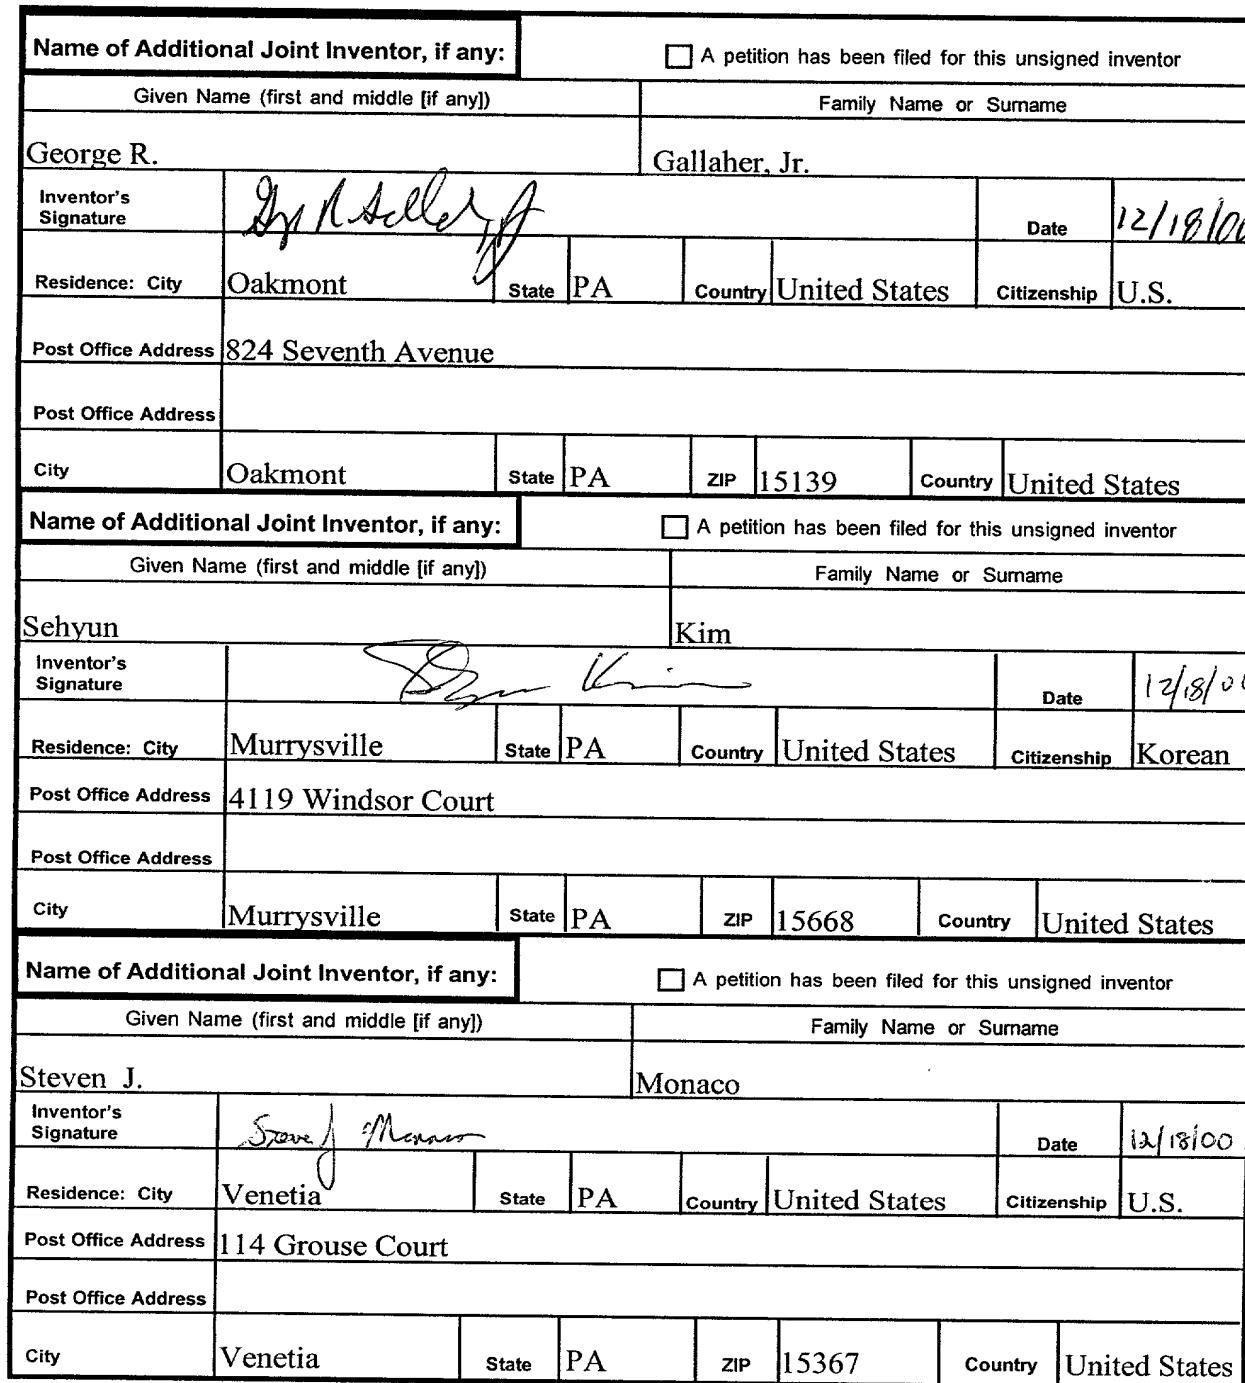 Name of Additional Joint Inventor, if any: A petition has been filed for this unsigned inventor
Given Name (first and middle [if any]) Family Name or Surname
George R. Gallaher, Jr.
Inventor's
Signature Date 12/18/00
Residence: City Oakmont State PA Country United States Citizenship U.S.
Post Office Address 824 Seventh Avenue
Post Office Address
City Oakmont State PA ZIP 15139 Country United States
Name of Additional Joint Inventor, if any: A petition has been filed for this unsigned inventor
Given Name (first and middle [if any]) Family Name or Surname
Sehyun Kim
Inventor's
Signature Kim Date 12/18/00
Residence: City Murrysville State PA Country United States Citizenship Korean
Post Office Address 4119 Windsor Court
Post Office Address
City Murrysville State PA ZIP 15668 Country United States
Name of Additional Joint Inventor, if any: A petition has been filed for this unsigned inventor
Given Name (first and middle [if any]) Family Name or Surname
Steven J. Monaco
Inventor's
Signature Steve J Monaco Date 12/18/00
Residence: City Venetia State PA Country United States Citizenship U.S.
Post Office Address 114 Grouse Court
Post Office Address
City Venetia State PA ZIP 15367 Country United States